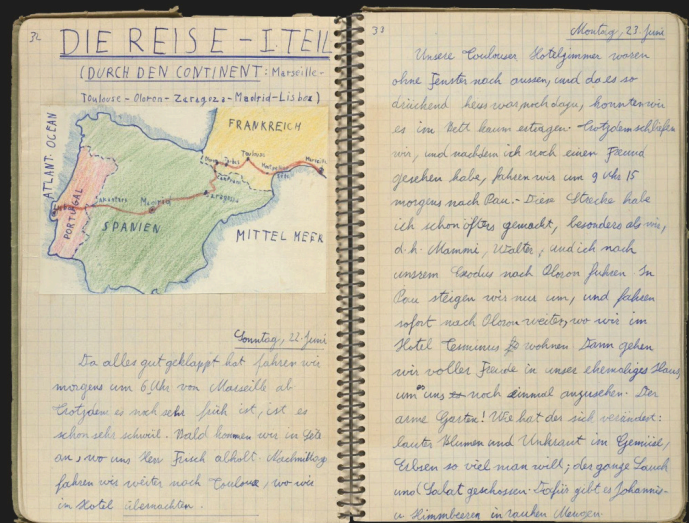 32
DIE REISE - I. TEIL
(DURCH DEN CONTINENT: Marseille-
Toulouse - Oloron - Zaragoza - Madrid - Lisboa)
ATLANT. OCEAN
FRANKREICH
Toulouse
Marseille
Zaragoza
Madrid
PORTUGAL
SPANIEN
MITTEL MEER
Sonntag, 22. Juni
Da alles gut geklappt hat fahren wir
morgens um 6 Uhr von Marseille ab
Trotzdem es noch sehr früh ist, ist es
schon sehr schwül. Bald kommen wir in Sète
an, wo uns Herr Frisch abholt. Nachmittags
fahren wir weiter nach Toulouse, wo wir
im Hotel übernachten.
33
Montag, 23. Juni
Unsere Toulouser Hotelzimmer waren
ohne Fenster nach aussen, und da es so
drückend heiss war noch dazu, konnten wir
es im Bett kaum ertragen. Trotzdem schliefen
wir, und nachdem ich noch einen Freund
gesehen habe, fahren wir um 9 Uhr 15
morgens nach Pau. - Diese Strecke habe
ich schon öfters gemacht, besonders als wir,
d.h. Mammi, Walter, und ich nach
unsrem Exodus nach Oloron fuhren. In
Pau steigen wir nur um, und fahren
sofort nach Oloron weiter, wo wir im
Hotel Terminus wohnen. Dann gehen
wir voller Freude in unser ehemaliges Haus,
um es uns noch einmal anzusehen. Der
arme Garten! Wie hat der sich verändert:
lauter Blumen und Unkraut im Gemüse,
Erbsen so viel man will; der ganze Lauch
und Salat geschossen. Dafür gibt es Johannis-
u. Himmbeeren in rauhen Mengen.